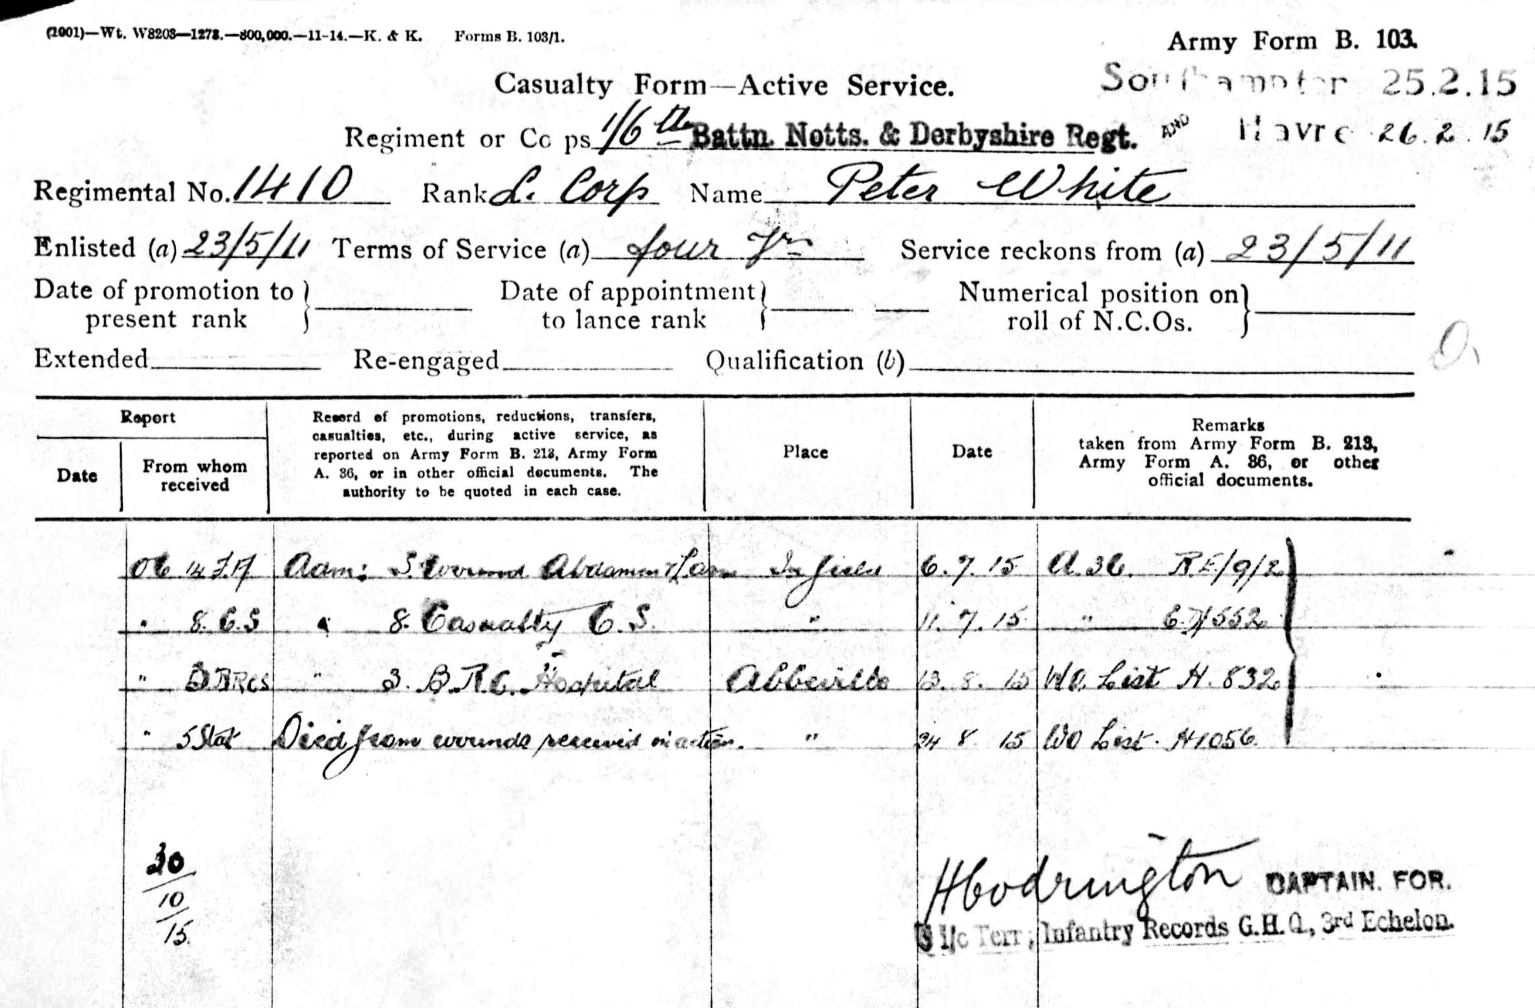 (2001)—Wt. W8203—1273.—800,000.—11-14.—K. & K. Forms B. 103/1.
Army Form B. 103.
Casualty Form—Active Service.
Southampton 25.2.15
Regiment or Co ps 1/6th Battn. Notts. & Derbyshire Regt.
AND Havre 26.2.15
Regimental No. 1410 Rank L. Corp Name Peter White
Enlisted (a) 23/5/11 Terms of Service (a) four yrs Service reckons from (a) 23/5/11
Date of promotion to present rank } Date of appointment to lance rank } Numerical position on roll of N.C.Os. }
Extended Re-engaged Qualification (b)
Report
Date
From whom received
Record of promotions, reductions, transfers,
casualties, etc., during active service, as
reported on Army Form B. 213, Army Form
A. 36, or in other official documents. The
authority to be quoted in each case.
Place
Date
Remarks
taken from Army Form B. 213,
Army Form A. 36, or other
official documents.
OC Adm: S. Wound Abdomen In field 6.7.15 A.36.
" 8. C.S " 8. Casualty C.S. " 11.7.15 "
" 3 BRCS " 3. B.R.C. Hospital Abbeville 13.8.15 WO. List H. 832
" 5 Stat Died from wounds received in action. " 24 8 15 WO List. H1056
30
10
15
CAPTAIN. FOR.
I/c Terr; Infantry Records G.H.Q., 3rd Echelon.